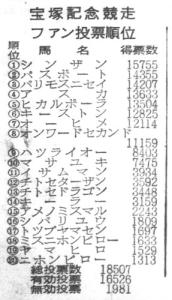 宝塚記念競走
ファン投票順位
順位 馬名 得票数
① シンザン 15755
② パスポート 14355
③ バリモスニセイ 14207
④ 13633
⑤ ヒカルポーラ 13504
⑥ キースト 12825
⑦ オートメ 12114
⑧ オンワードセカンド
11159
⑨ ハツライオー 8403
⑩ マサユキ 7475
⑪ イサムサン 3934
⑫ チトセターザン 3592
⑬ チトセドラゴン 3448
⑭ キーラー 3159
⑮ アメノミスマル 2243
⑯ シモフリ 1809
⑰ トツプヤマセン 1697
⑱ ミスニホンピロー 1633
⑲ ヤマヒロ 1529
⑳ ニホンピロー 1313
総投票数 18507
有効投票 16526
無効投票 1981